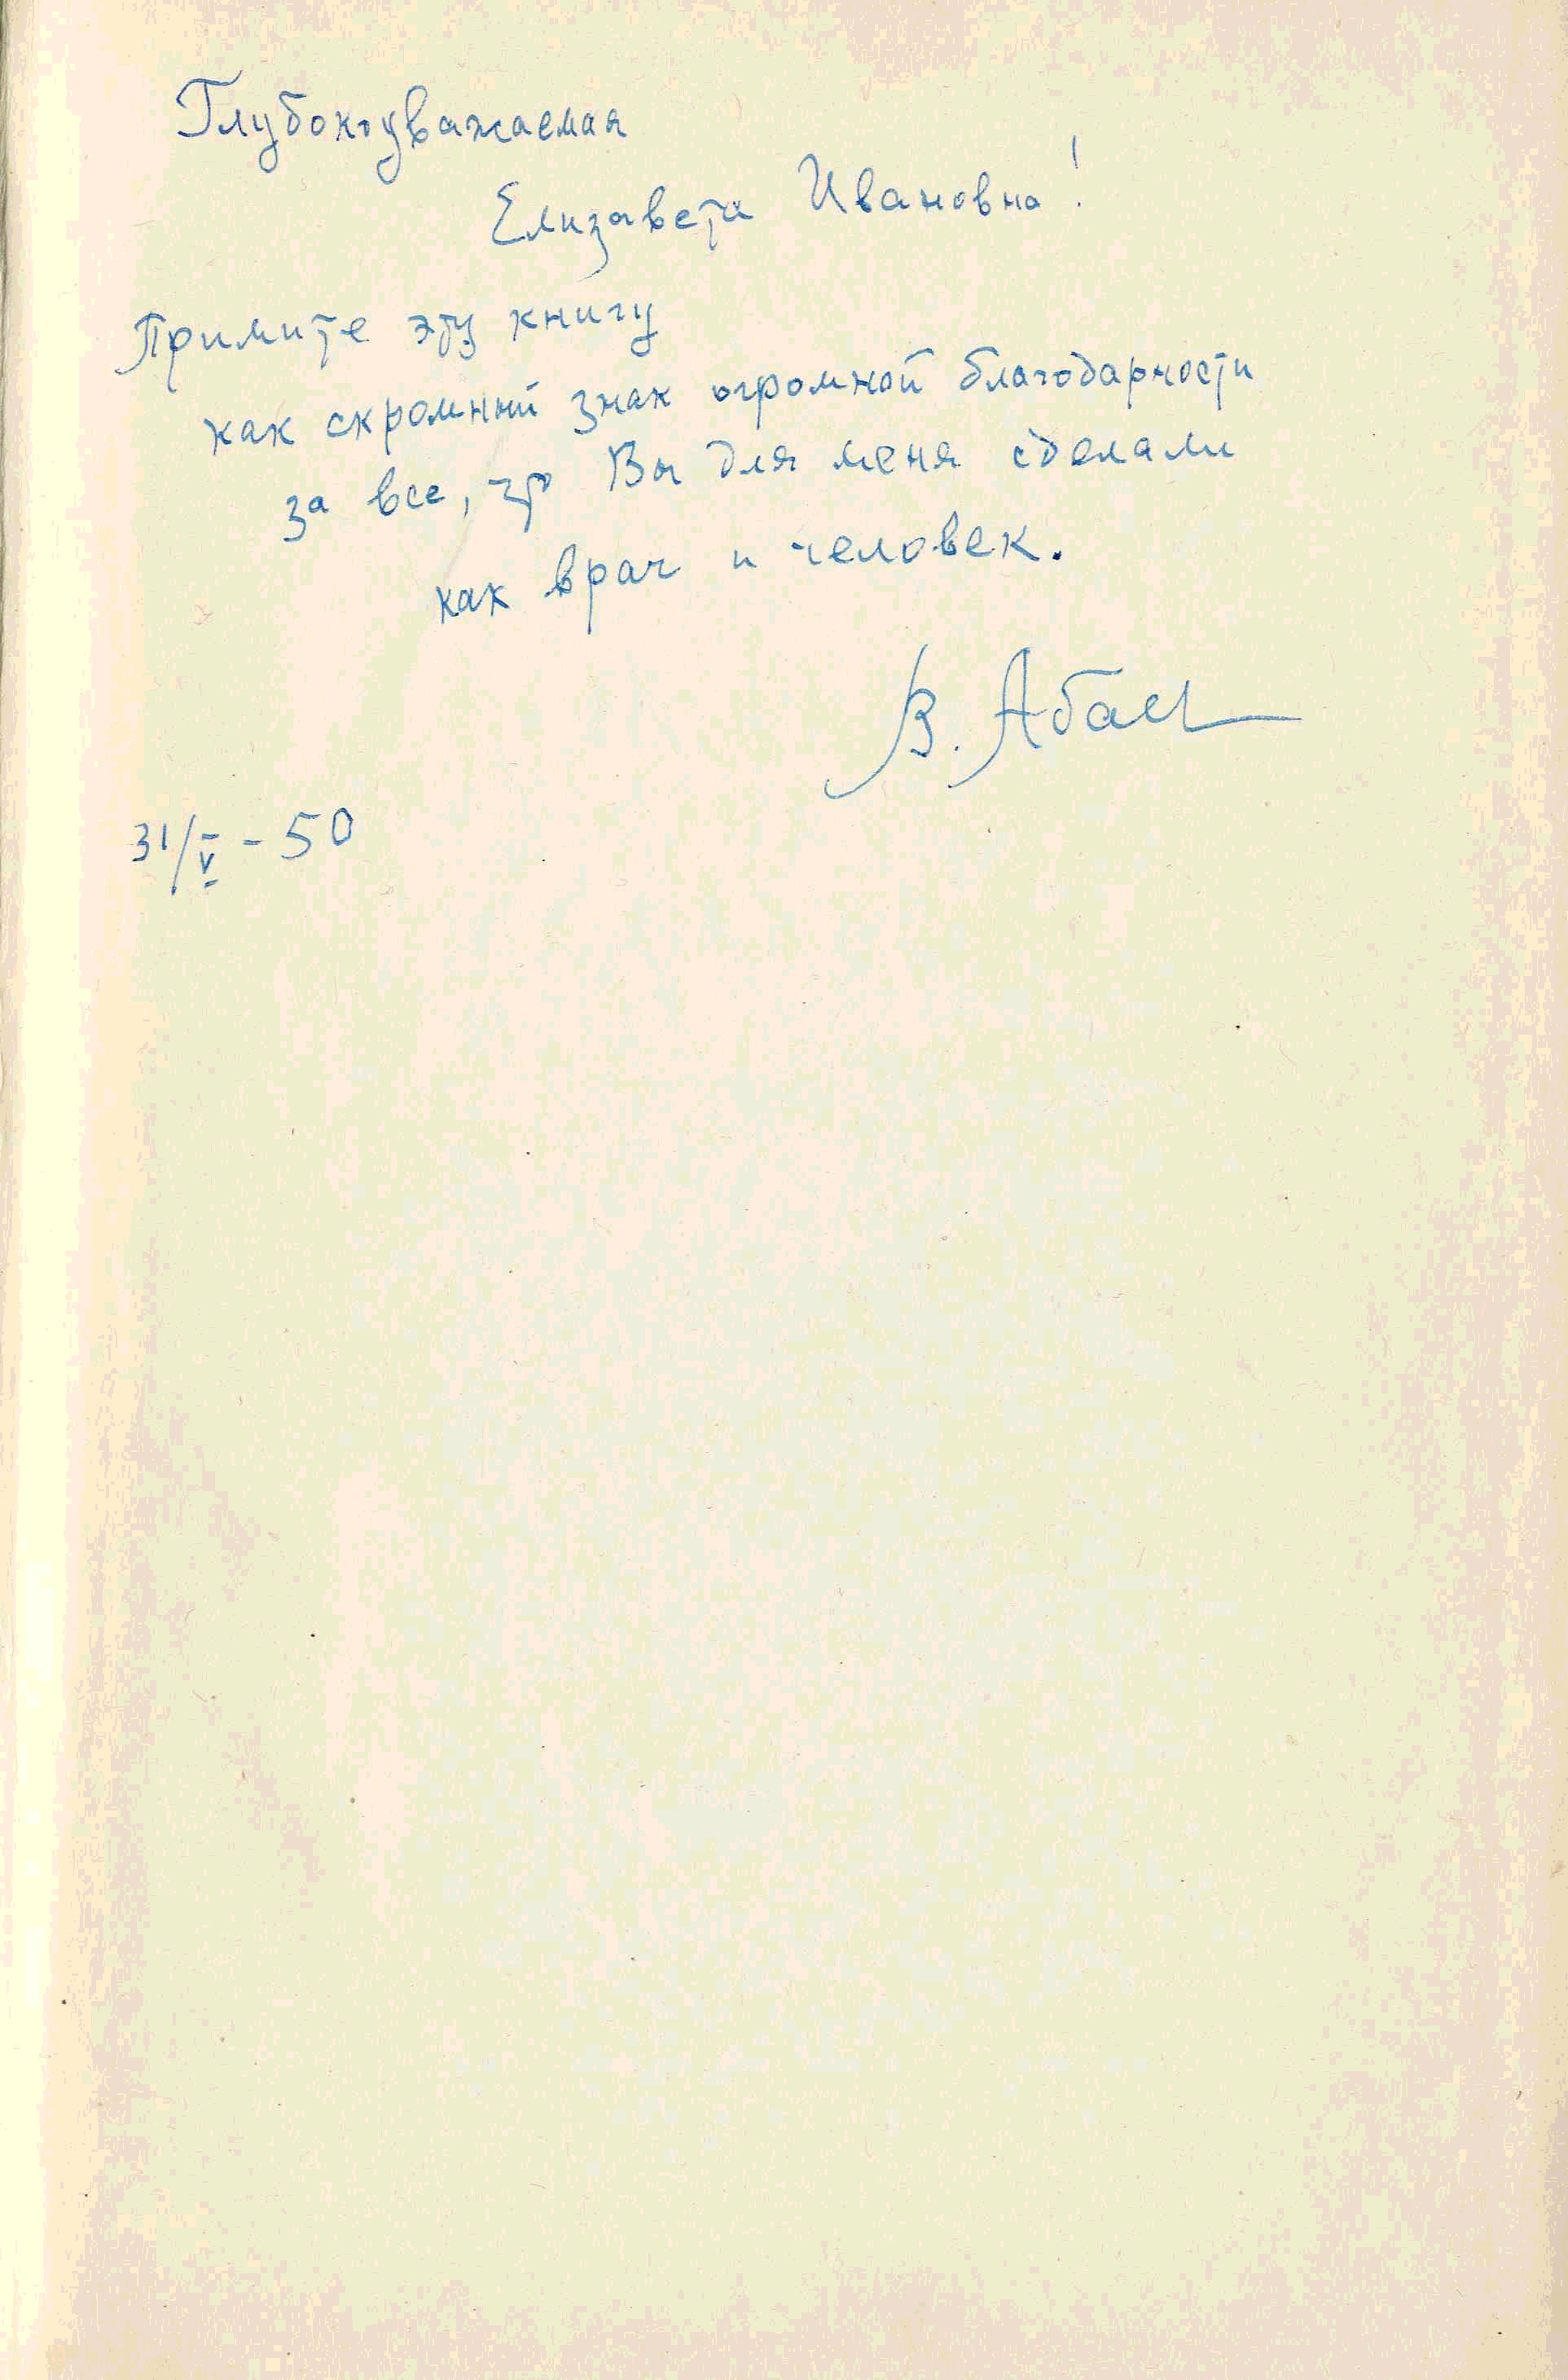 Глубокоуважаемая
Елизавета Ивановна!
Примите эту книгу
как скромный знак огромной благодарности
за все, что Вы для меня сделали
как врач и человек.
В. Абаев
31/V - 50